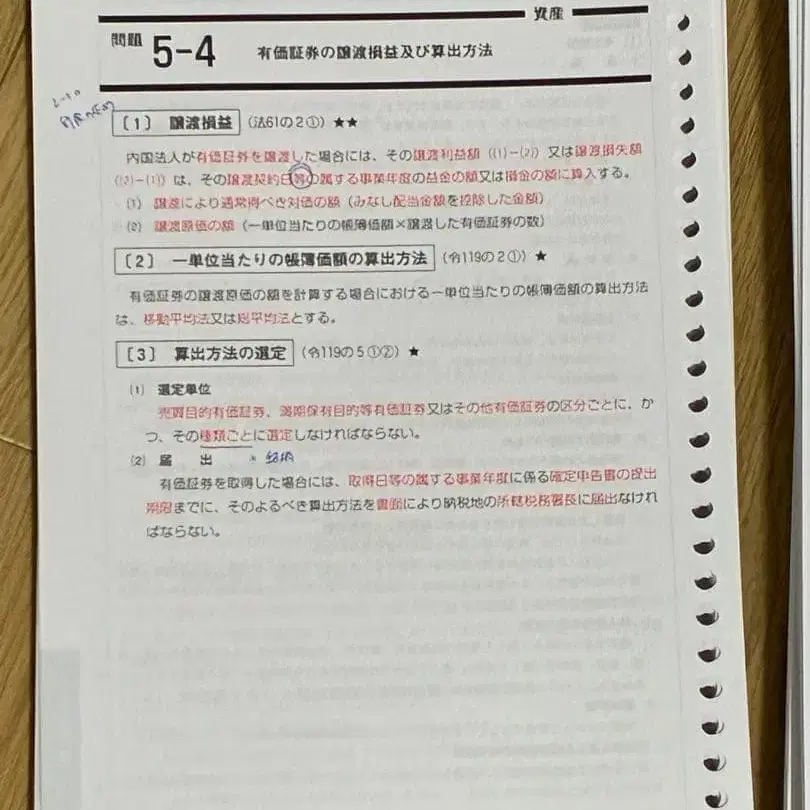 資産
問題 5-4 有価証券の譲渡損益及び算出方法
〔1〕 譲渡損益 (法61の2①) ★★
内国法人が有価証券を譲渡した場合には、その譲渡利益額((1)-(2))又は譲渡損失額
((2)-(1))は、その譲渡契約日等の属する事業年度の益金の額又は損金の額に算入する。
(1) 譲渡により通常得べき対価の額(みなし配当金額を控除した金額)
(2) 譲渡原価の額(一単位当たりの帳簿価額×譲渡した有価証券の数)
〔2〕 一単位当たりの帳簿価額の算出方法 (令119の2①) ★
有価証券の譲渡原価の額を計算する場合における一単位当たりの帳簿価額の算出方法
は、移動平均法又は総平均法とする。
〔3〕 算出方法の選定 (令119の5①②) ★
(1) 選定単位
売買目的有価証券、満期保有目的等有価証券又はその他有価証券の区分ごとに、か
つ、その種類ごとに選定しなければならない。
(2) 届 出
有価証券を取得した場合には、取得日等の属する事業年度に係る確定申告書の提出
期限までに、そのよるべき算出方法を書面により納税地の所轄税務署長に届出なけれ
ばならない。